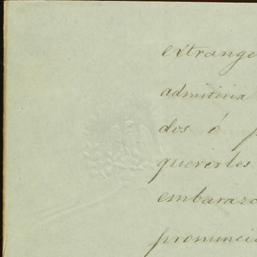 extrange
admitiria
dos ó p
quererles
embaraza
pronuncia